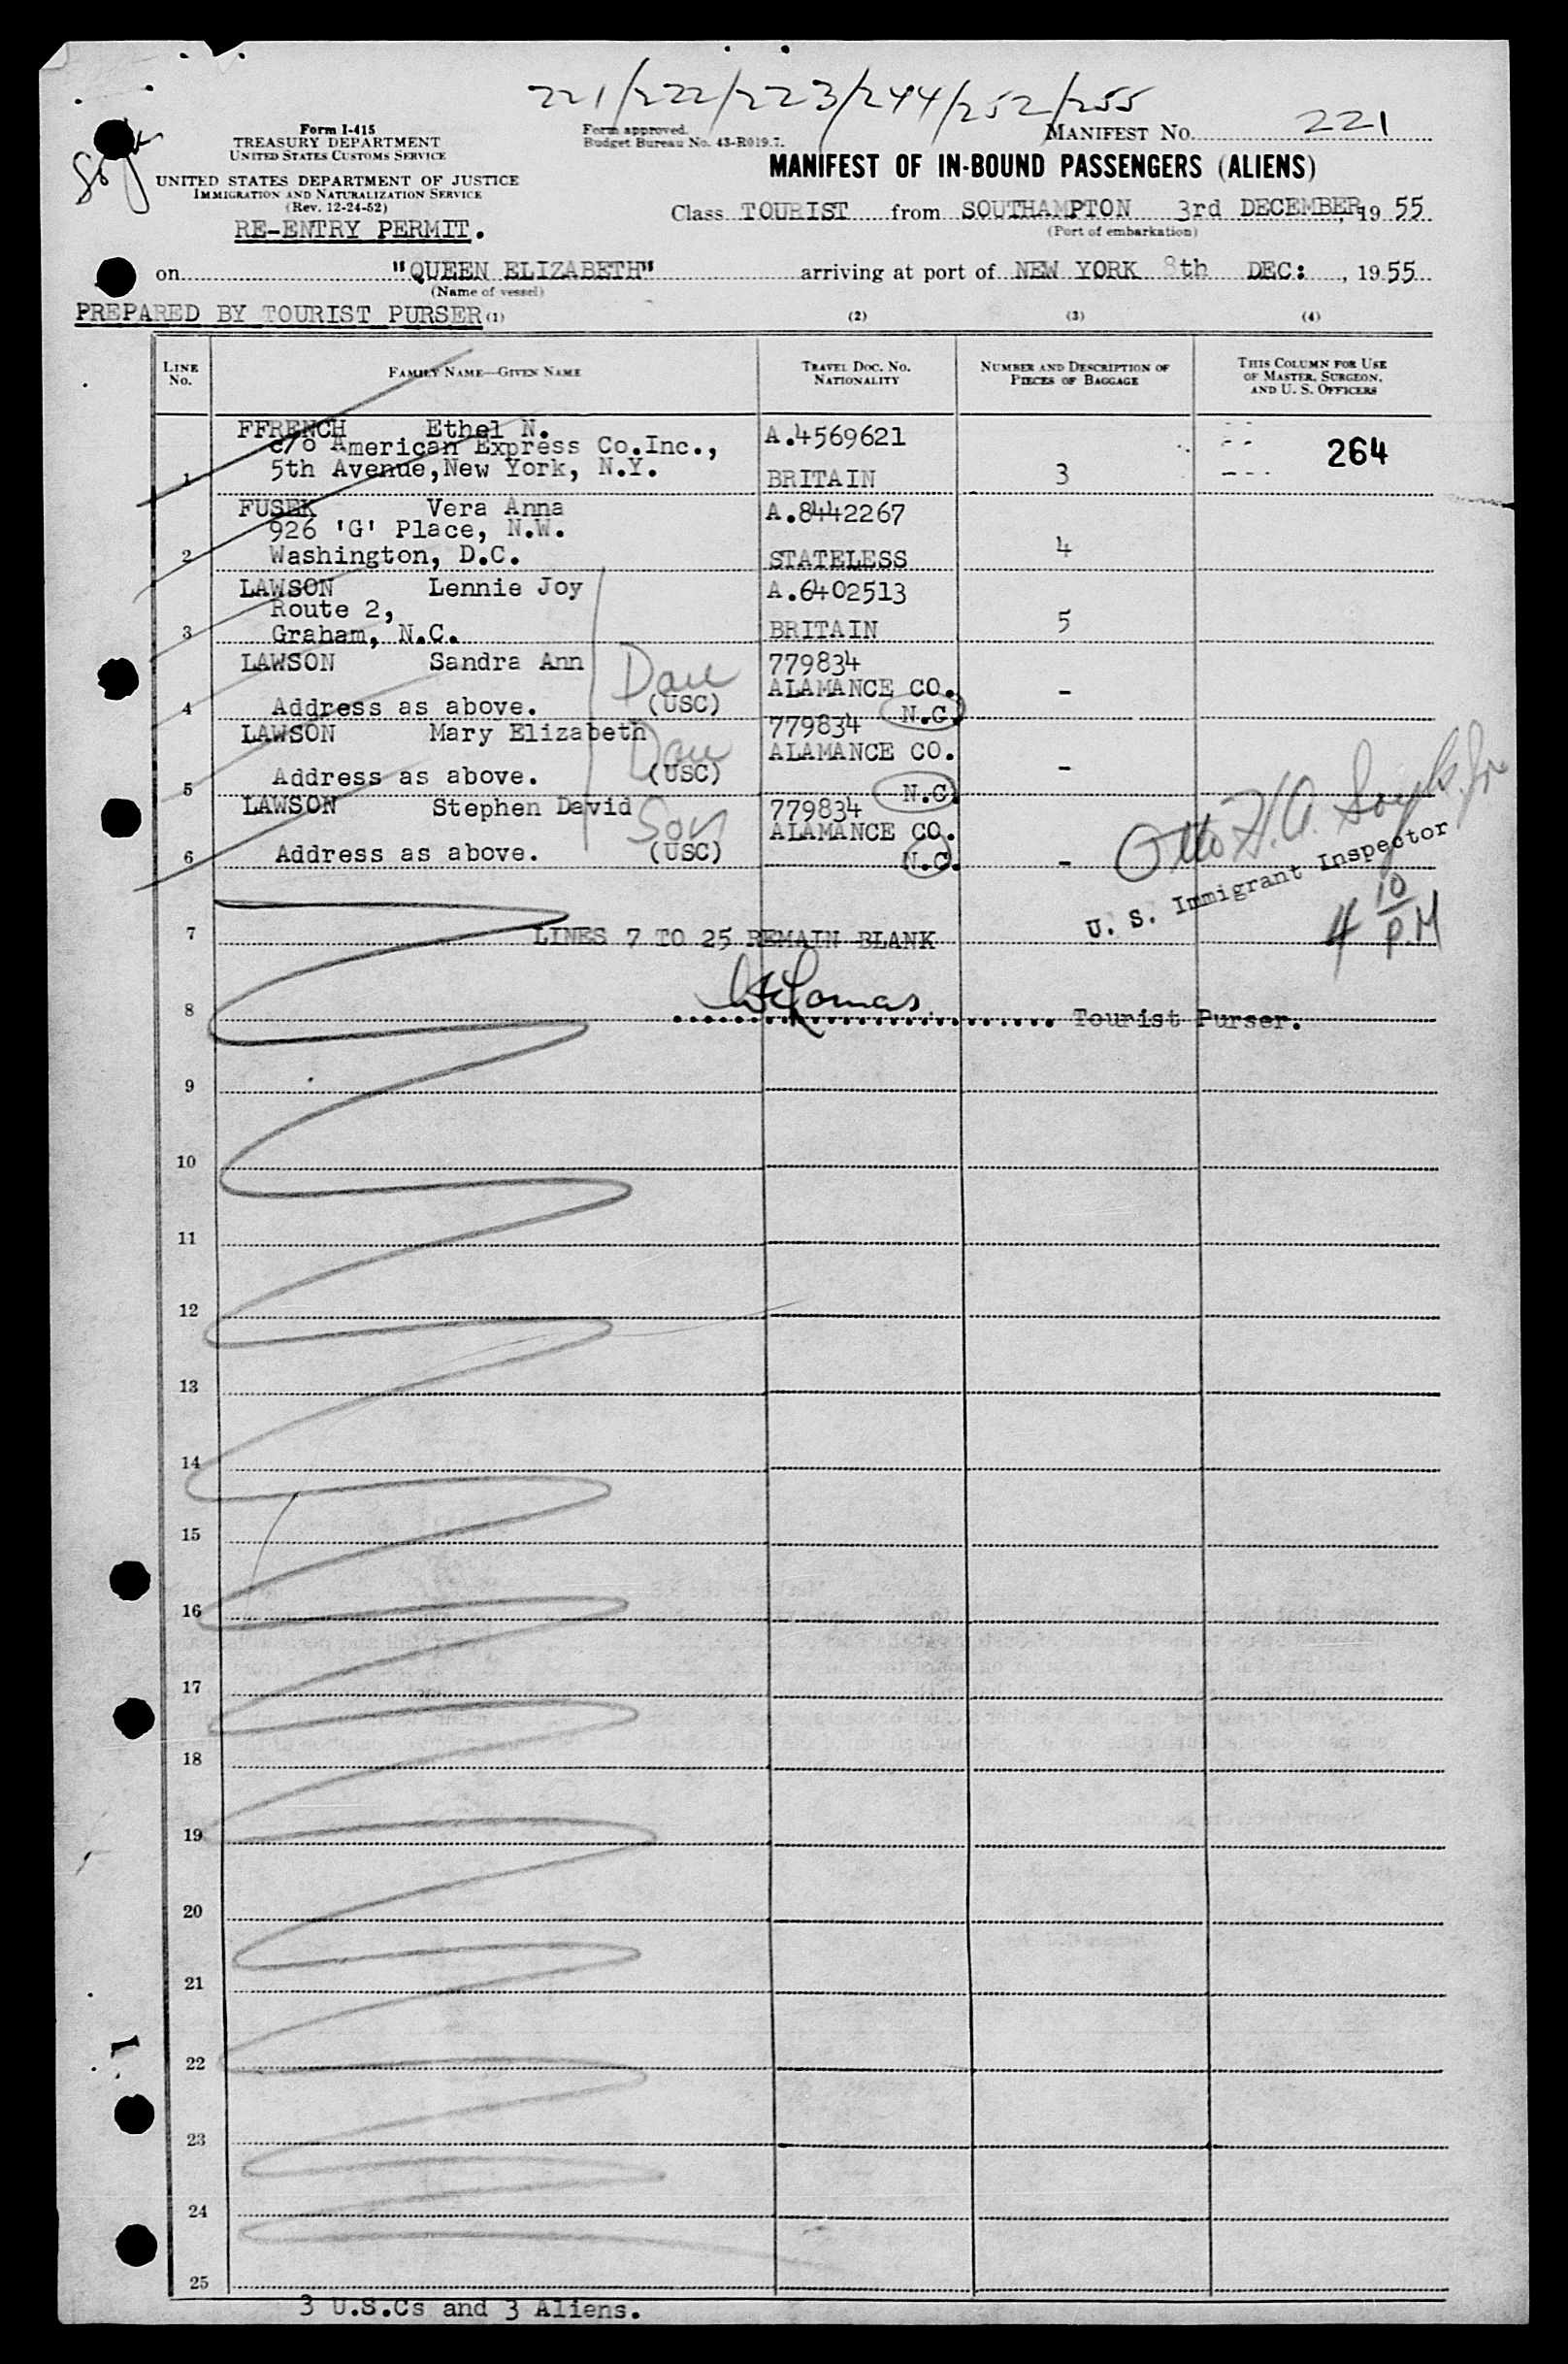 221/222/223/244/252/255
Form I-415
TREASURY DEPARTMENT
UNITED STATES CUSTOMS SERVICE
UNITED STATES DEPARTMENT OF JUSTICE
IMMIGRATION AND NATURALIZATION SERVICE
(Rev. 12-24-52)
RE-ENTRY PERMIT.
Form approved.
Budget Bureau No. 43-R019.7.
MANIFEST No. 221
MANIFEST OF IN-BOUND PASSENGERS (ALIENS)
Class TOURIST from SOUTHAMPTON 3rd DECEMBER, 19 55
(Port of embarkation)
on "QUEEN ELIZABETH" arriving at port of NEW YORK 8th DEC: , 19 55
(Name of vessel)
PREPARED BY TOURIST PURSER (1) (2) (3) (4)
LINE No. FAMILY NAME—GIVEN NAME TRAVEL DOC. No. NATIONALITY NUMBER AND DESCRIPTION OF PIECES OF BAGGAGE THIS COLUMN FOR USE OF MASTER, SURGEON, AND U. S. OFFICERS
FFRENCH Ethel N. A.4569621 264
c/o American Express Co.Inc.,
1 5th Avenue,New York, N.Y. BRITAIN 3
FUSEK Vera Anna A.8442267
926 'G' Place, N.W.
2 Washington, D.C. STATELESS 4
LAWSON Lennie Joy A.6402513
Route 2,
3 Graham, N.C. BRITAIN 5
LAWSON Sandra Ann Dau 779834
ALAMANCE CO.
4 Address as above. (USC) N.C. -
LAWSON Mary Elizabeth Dau 779834
ALAMANCE CO.
5 Address as above. (USC) N.C. -
LAWSON Stephen David Son 779834
ALAMANCE CO.
6 Address as above. (USC) N.C. -
U. S. Immigrant Inspector
4 10/P.M
7 LINES 7 TO 25 REMAIN BLANK
8 Lomas Tourist Purser.
9
10
11
12
13
14
15
16
17
18
19
20
21
22
23
24
25
3 U.S.Cs and 3 Aliens.